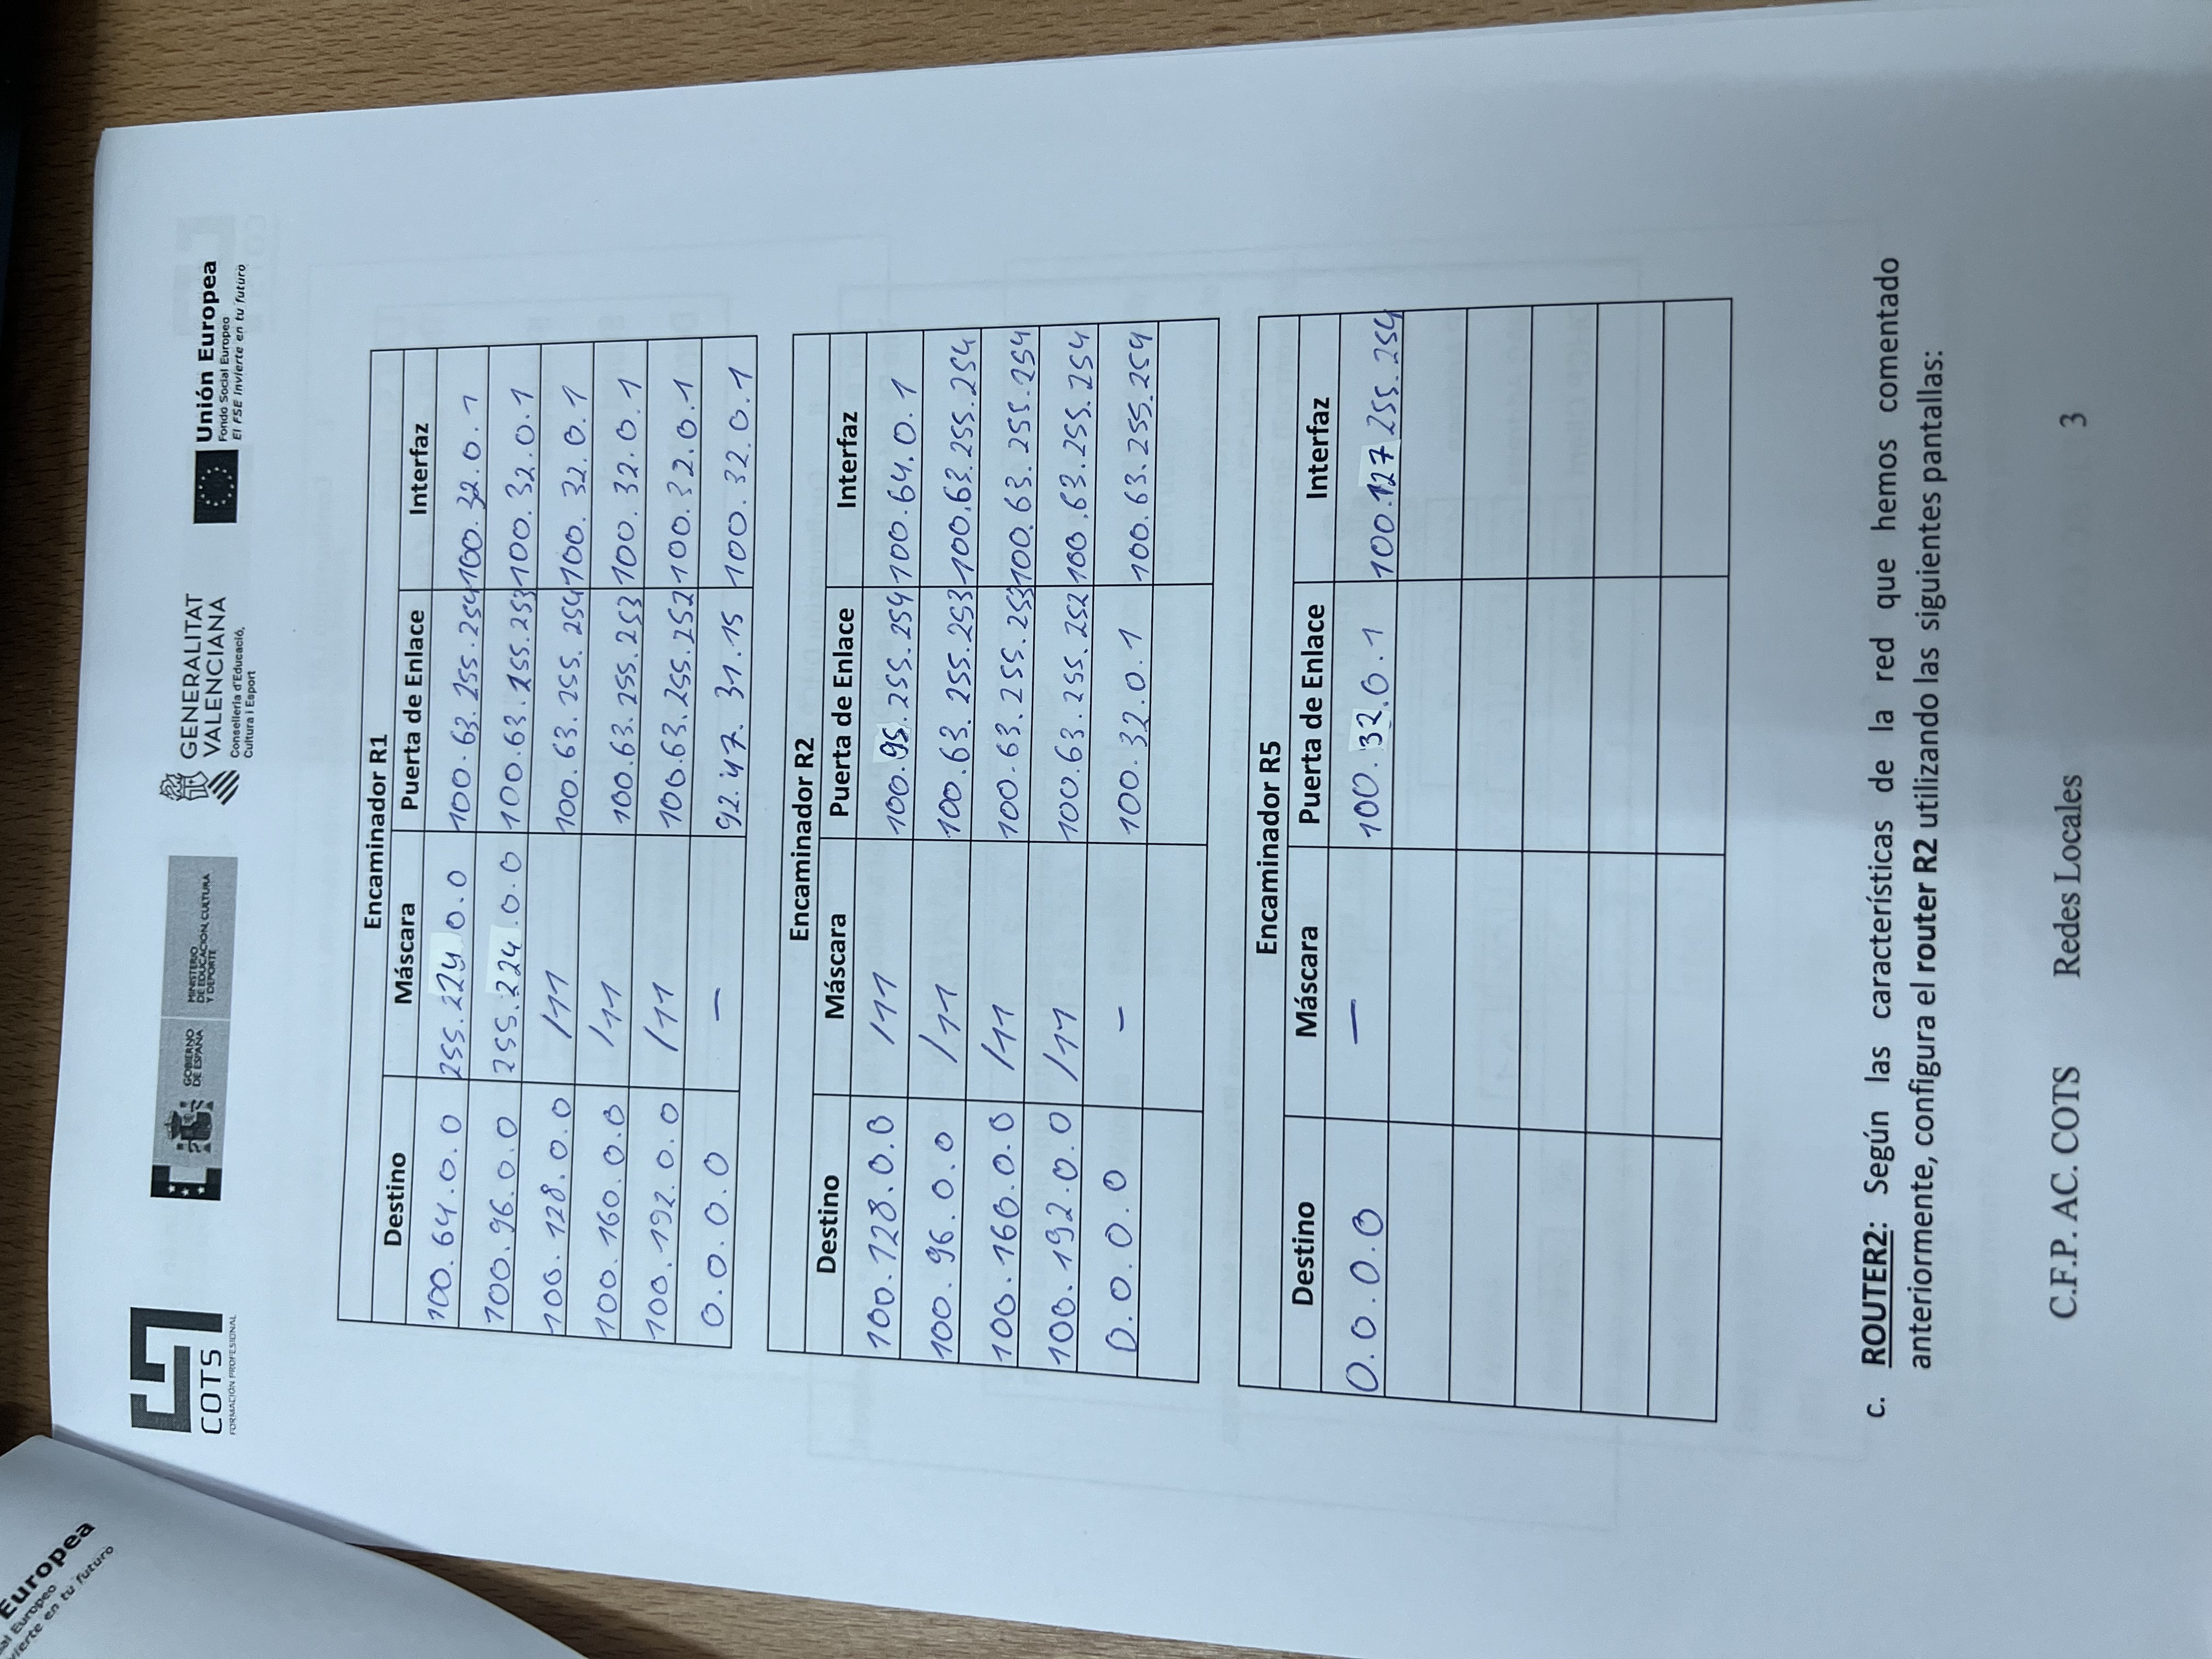 Europea
ial Europeo
vierte en tu futuro
COTS
FORMACIÓN PROFESIONAL
GOBIERNO
DE ESPAÑA
MINISTERIO
DE EDUCACIÓN, CULTURA
Y DEPORTE
GENERALITAT
VALENCIANA
Conselleria d'Educació,
Cultura i Esport
Unión Europea
Fondo Social Europeo
El FSE invierte en tu futuro
Encaminador R1
Destino Máscara Puerta de Enlace Interfaz
100.64.0.0 255.224 0.0 100.63.255.254 100.32.0.1
100.96.0.0 255.224.0.0 100.63.255.253 100.32.0.1
100.128.0.0 /11 100.63.255.254 100.32.0.1
100.160.0.0 /11 100.63.255.253 100.32.0.1
100.192.0.0 /11 100.63.255.252 100.32.0.1
0.0.0.0 — 92.47.31.15 100.32.0.1
Encaminador R2
Destino Máscara Puerta de Enlace Interfaz
100.128.0.0 /11 100.95.255.254 100.64.0.1
100.96.0.0 /11 100.63.255.253 100.63.255.254
100.160.0.0 /11 100.63.255.253 100.63.255.254
100.192.0.0 /11 100.63.255.252 100.63.255.254
0.0.0.0 — 100.32.0.1 100.63.255.254
Encaminador R5
Destino Máscara Puerta de Enlace Interfaz
0.0.0.0 — 100.32.0.1 100.127 255.254
c. ROUTER2: Según las características de la red que hemos comentado
anteriormente, configura el router R2 utilizando las siguientes pantallas:
C.F.P. AC. COTS Redes Locales 3